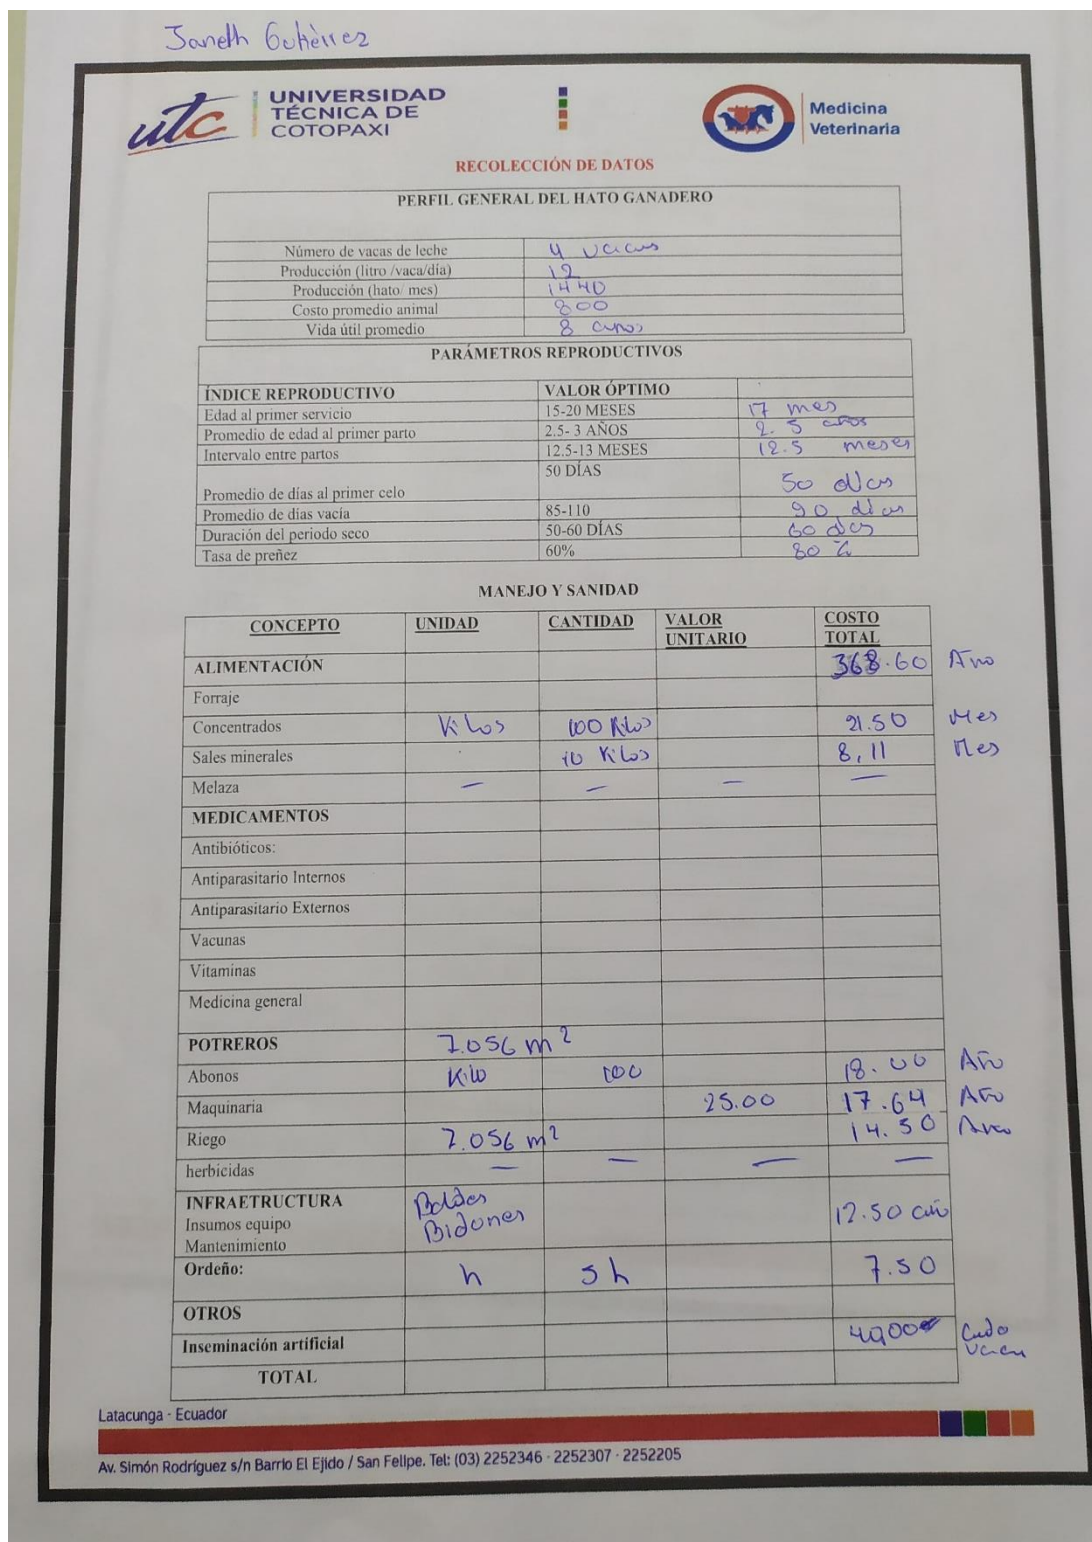 Janeth Gutièrrez
utc UNIVERSIDAD TÉCNICA DE COTOPAXI
Medicina Veterinaria
RECOLECCIÓN DE DATOS
PERFIL GENERAL DEL HATO GANADERO
Número de vacas de leche 4 vacas
Producción (litro /vaca/día) 12
Producción (hato/ mes) 1440
Costo promedio animal 800
Vida útil promedio 8 años
PARÁMETROS REPRODUCTIVOS
ÍNDICE REPRODUCTIVO VALOR ÓPTIMO
Edad al primer servicio 15-20 MESES 17 mes
Promedio de edad al primer parto 2.5- 3 AÑOS 2.5 años
Intervalo entre partos 12.5-13 MESES 12.5 meses
Promedio de días al primer celo 50 DÍAS 50 dias
Promedio de días vacía 85-110 90 dias
Duración del periodo seco 50-60 DÍAS 60 dias
Tasa de preñez 60% 80 %
MANEJO Y SANIDAD
CONCEPTO UNIDAD CANTIDAD VALOR UNITARIO COSTO TOTAL
ALIMENTACIÓN 368.60 Año
Forraje
Concentrados Kilos 100 Kilos 21.50 Mes
Sales minerales 10 Kilos 8,11 Mes
Melaza — — — —
MEDICAMENTOS
Antibióticos:
Antiparasitario Internos
Antiparasitario Externos
Vacunas
Vitaminas
Medicina general
POTREROS 7.056 m²
Abonos Kilo 100 18.00 Año
Maquinaria 25.00 17.64 Año
Riego 7.056 m² 14.50 Año
herbicidas — — — —
INFRAETRUCTURA Baldes
Insumos equipo Bidones 12.50 año
Mantenimiento
Ordeño: h 5 h 7.50
OTROS
Inseminación artificial 40,00 Cada vaca
TOTAL
Latacunga - Ecuador
Av. Simón Rodríguez s/n Barrio El Ejido / San Felipe. Tel: (03) 2252346 - 2252307 - 2252205